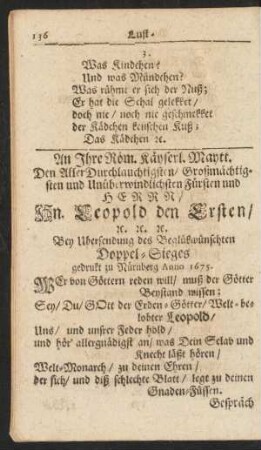 136 Lust-
3.
Was Kindchen?
Und was Mündchen?
Was rühme er sich der Nuß;
Er hat die Schal gelekket/
doch nie/ noch nie geschmekket
der Kädchen keuschen Kuß:
Das Kädchen ꝛc.
An Ihre Röm. Käyserl. Maytt.
Den Aller Durchlauchtigsten/ Großmächtig-
sten und Unüberwindlichsten Fürsten und
HERRN/
Hn. Leopold den Ersten/
ꝛc. ꝛc. ꝛc.
Bey Ubersendung des Beglükwünschten
Doppel-Sieges
gedrukt zu Nürnberg Anno 1675.
WEr von Göttern reden will/ muß der Götter
Beystand wissen:
Sey/ Du/ GOtt der Erden-Götter/ Welt-be-
lobter Leopold/
Uns/ und unsrer Feder hold/
und hör' allergnädigst an/ was Dein Sclav und
Knecht läßt hören/
Welt-Monarch/ zu deinen Ehren/
der sich/ und diß schlechte Blatt/ legt zu deinen
Gnaden-Füssen.
Gespräch